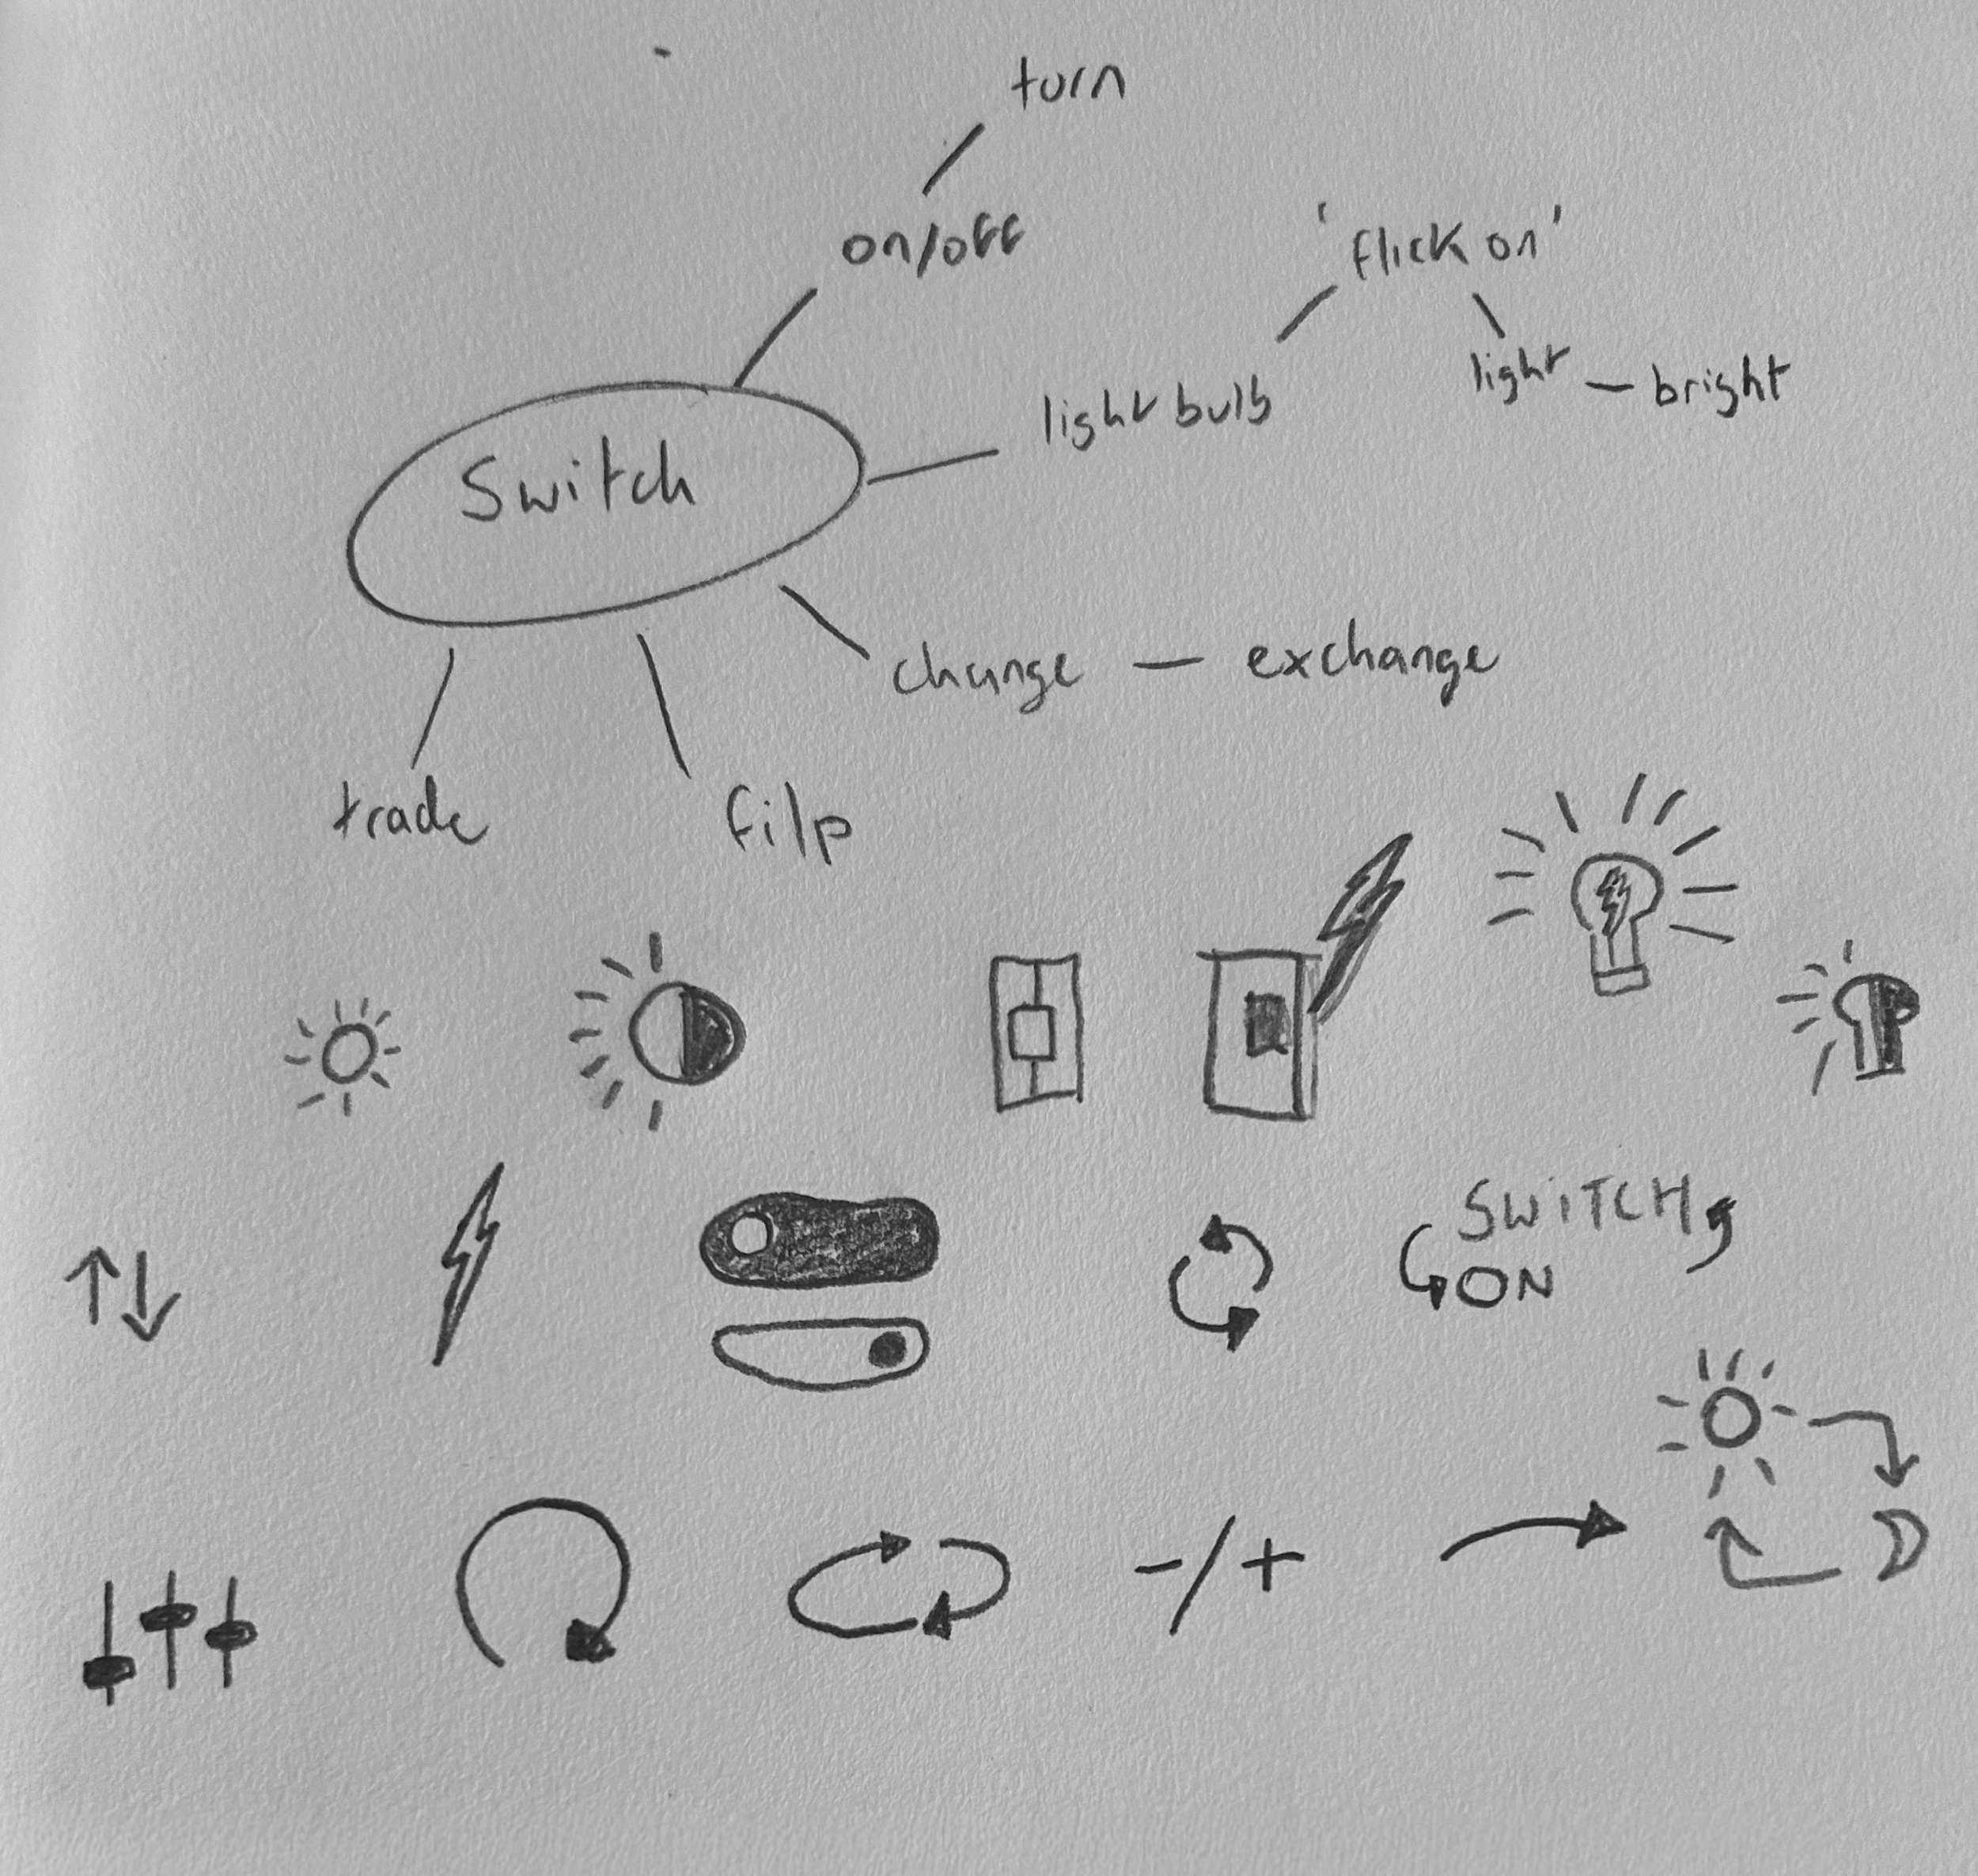 turn
on/off
'flick on'
light – bright
light bulb
Switch
change – exchange
trade
filp
SWiTCH
ON
-/+